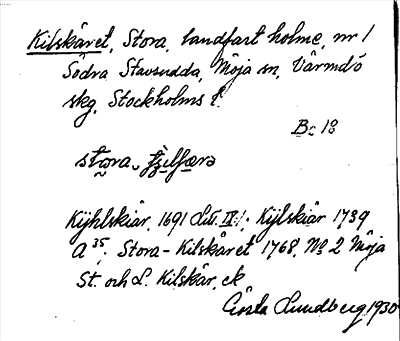 Kilskäret, Stora, landfast holme, nr 1
Södra Stavsudda, Möja sn, Värmdö
skg, Stockholms l.
Bc 18
stora
Kijhlskiär, 1691 Litt. IX 1; Kijlskiär 1739
A 35; Stora-Kilskäret 1768, No 2 Möja
St. och L. Kilskär, ek
Gösta Lundberg 1930